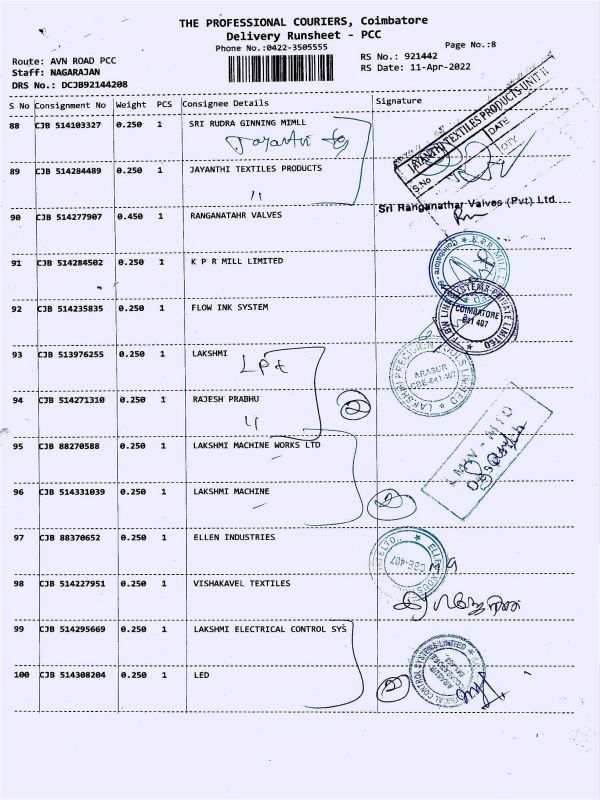 THE PROFESSIONAL COURIERS, Coimbatore
Delivery Runsheet - PCC
Phone No.:0422-3505555
Page No.:8
Route: AVN ROAD PCC
RS No.: 921442
Staff: NAGARAJAN
RS Date: 11-Apr-2022
DRS No.: DCJB92144208
S No Consignment No Weight PCS Consignee Details Signature
88 CJB 514103327 0.250 1 SRI RUDRA GINNING MIMLL
JAYANTHI TEXTILES PRODUCTS-UNIT II
S.No DATE
89 CJB 514284489 0.250 1 JAYANTHI TEXTILES PRODUCTS
"
Sri Ranganathar Valves (Pvt) Ltd
90 CJB 514277907 0.450 1 RANGANATAHR VALVES
91 CJB 514284502 0.250 1 K P R MILL LIMITED
K.P.R. MILL
92 CJB 514235835 0.250 1 FLOW INK SYSTEM
FLOW LINK SYSTEMS PRIVATE LIMITED
COIMBATORE
641 407
93 CJB 513976255 0.250 1 LAKSHMI
LPt
LAKSHMI PRECISION TOOLS LIMITED
ARASUR
CBE-641 407
94 CJB 514271310 0.250 1 RAJESH PRABHU
"
2
95 CJB 88270588 0.250 1 LAKSHMI MACHINE WORKS LTD
96 CJB 514331039 0.250 1 LAKSHMI MACHINE
2
97 CJB 88370652 0.250 1 ELLEN INDUSTRIES
CBE-407
98 CJB 514227951 0.250 1 VISHAKAVEL TEXTILES
99 CJB 514295669 0.250 1 LAKSHMI ELECTRICAL CONTROL SYS
100 CJB 514308204 0.250 1 LED
2